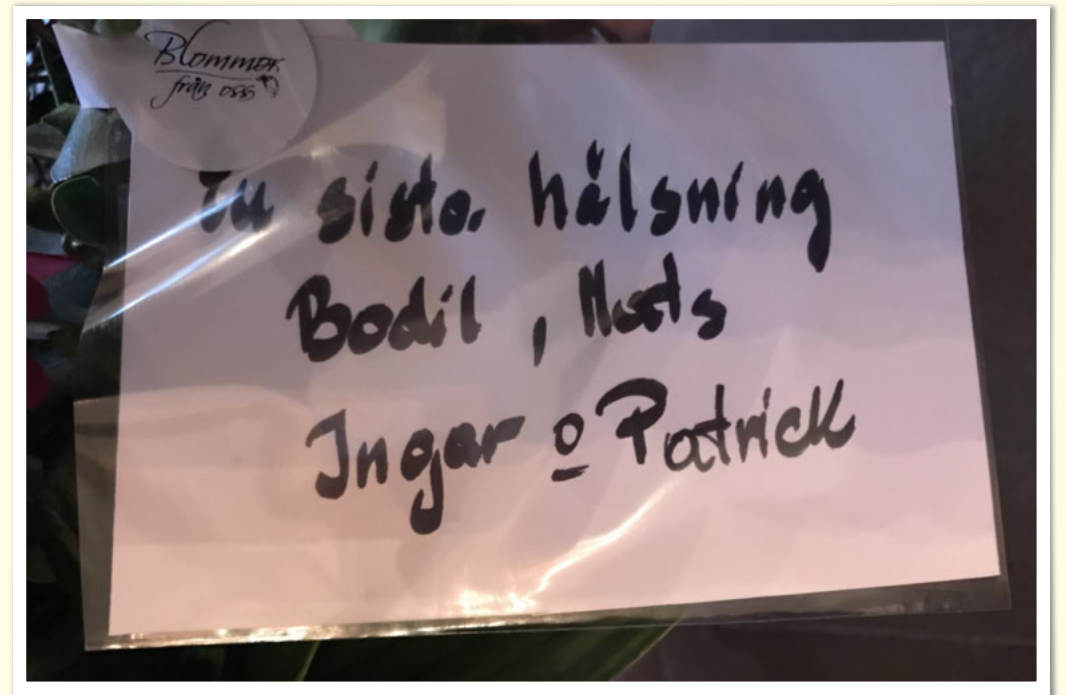 Blommor
från oss
En sista hälsning
Bodil, Mats
Ingar o Patrick